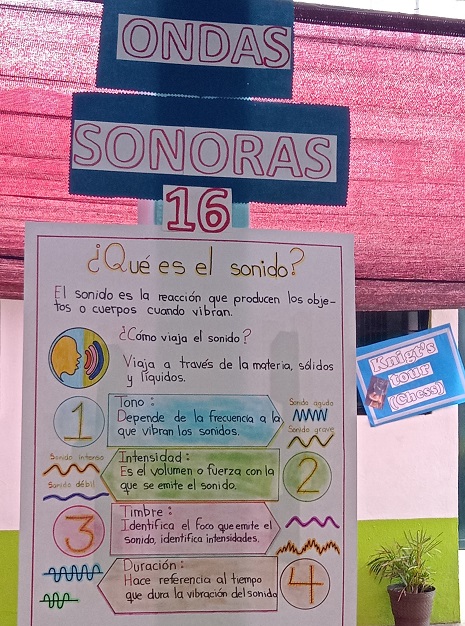 ONDAS
SONORAS
16
¿Qué es el sonido?
El sonido es la reacción que producen los obje-
tos o cuerpos cuando vibran.
¿Cómo viaja el sonido?
Viaja a través de la materia, sólidos
y líquidos.
1
Tono:
Depende de la frecuencia a la
que vibran los sonidos.
Sonido agudo
Sonido grave
Sonido intenso
Sonido débil
Intensidad:
Es el volumen o fuerza con la
que se emite el sonido.
2
3
Timbre:
Identifica el foco que emite el
sonido, identifica intensidades.
Duración:
Hace referencia al tiempo
que dura la vibración del sonido
4
Knigt's
tour
(Chess)